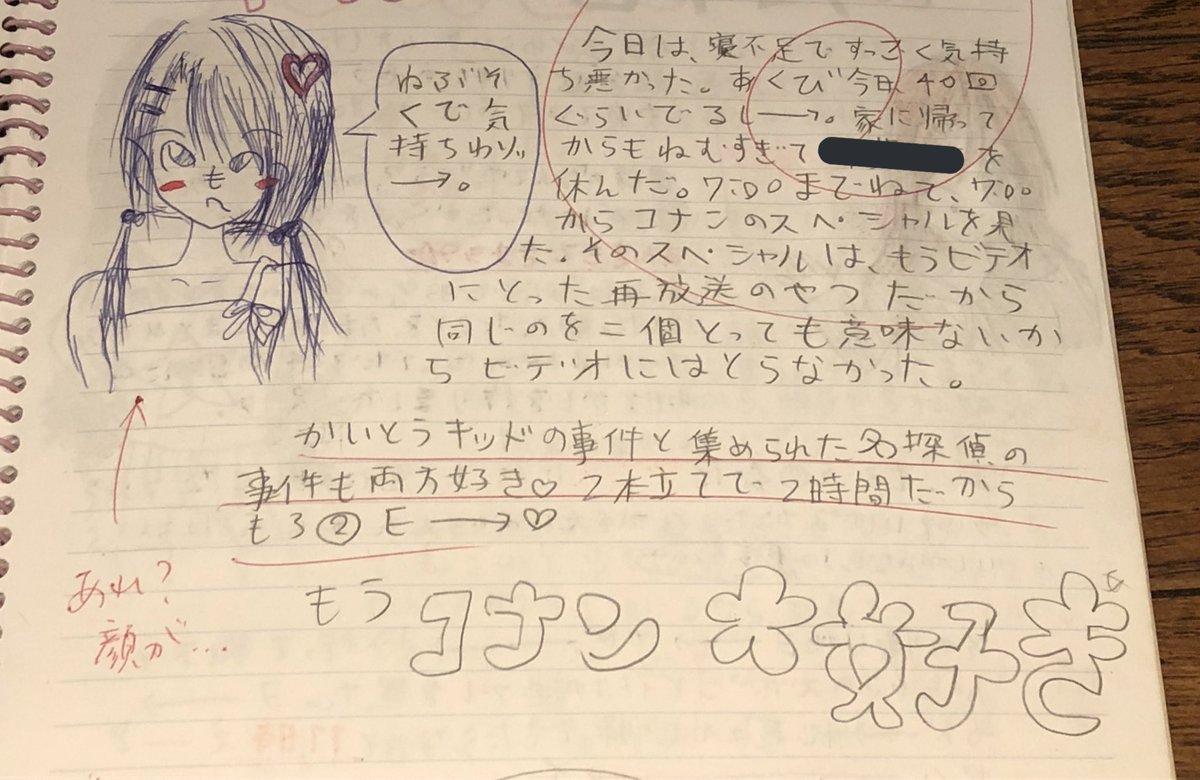 ねぶそ
くで気
持ちわりぃ
→。
今日は、寝不足ですっごく気持
ち悪かった。あくび今日40回
ぐらいでるし→。家に帰って
からもねむすぎて を
休んだ。7:00までねて、7:00
からコナンのスペシャルを見
た。そのスペシャルは、もうビデオ
にとった再放送のやつだから
同じのを二個とっても意味ないか
らビデオにはとらなかった。
かいとうキッドの事件と集められた名探偵の
事件も両方好き♡2本立てで2時間だから
もろ②E→♡
あれ?
顔が...
もうコナン大好き